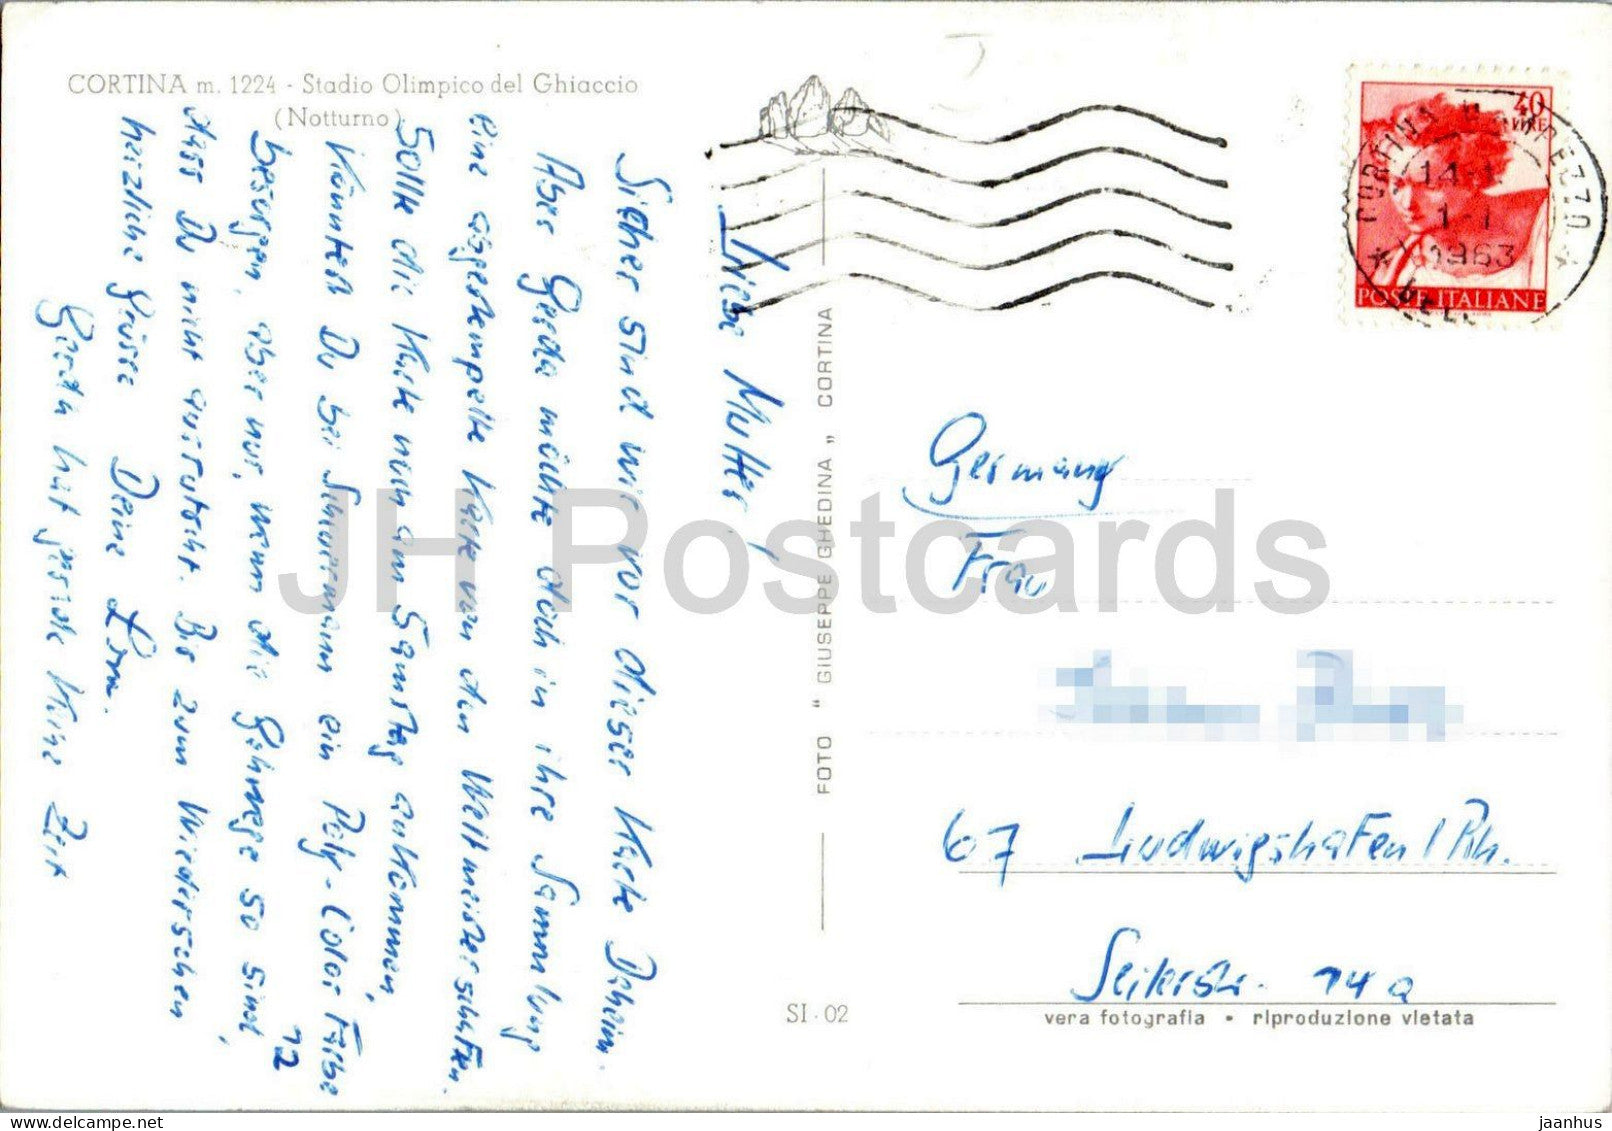 CORTINA m. 1224 - Stadio Olimpico del Ghiaccio
(Notturno)
Liebe Mutter,
Sicher sind wir vor dieser Karte Daheim.
Aber Gerda möchte doch in ihre Sammlung
eine abgestempelte Karte von den Weltmeisterschaften.
Sollte die Karte noch am Samstag ankommen,
Könntest Du bei Schuermann ein Poly-Color Farbe
12
besorgen, aber nur, wenn die Gehwege so sind,
dass Du nicht ausrutscht. Bis zum Wiedersehen
herzliche Grüsse Deine
Gerda hat gerade keine Zeit
FOTO " GIUSEPPE GHEDINA „ CORTINA
SI - 02
40
LIRE
POSTE ITALIANE
CORTINA D'AMPEZZO
14-
1-1
1963
Germany
Frau
67 Ludwigshafen / Rh.
14 a
vera fotografia • riproduzione vietata
JH Postcards
jaanhus